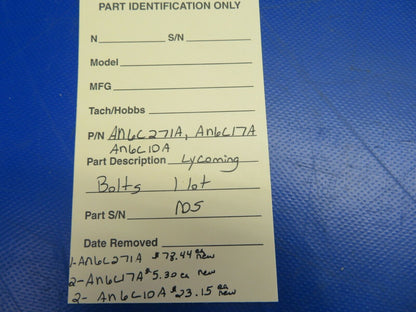 PART IDENTIFICATION ONLY
N S/N
Model
MFG
Tach/Hobbs
P/N AN6C271A, AN6C17A
AN6C10A
Part Description Lycoming
Bolts 1 lot
Part S/N NS
Date Removed
1-AN6C271A $78.44 ea new
2-AN6C17A $5.30 ea new
2- AN6C10A $23.15 ea new